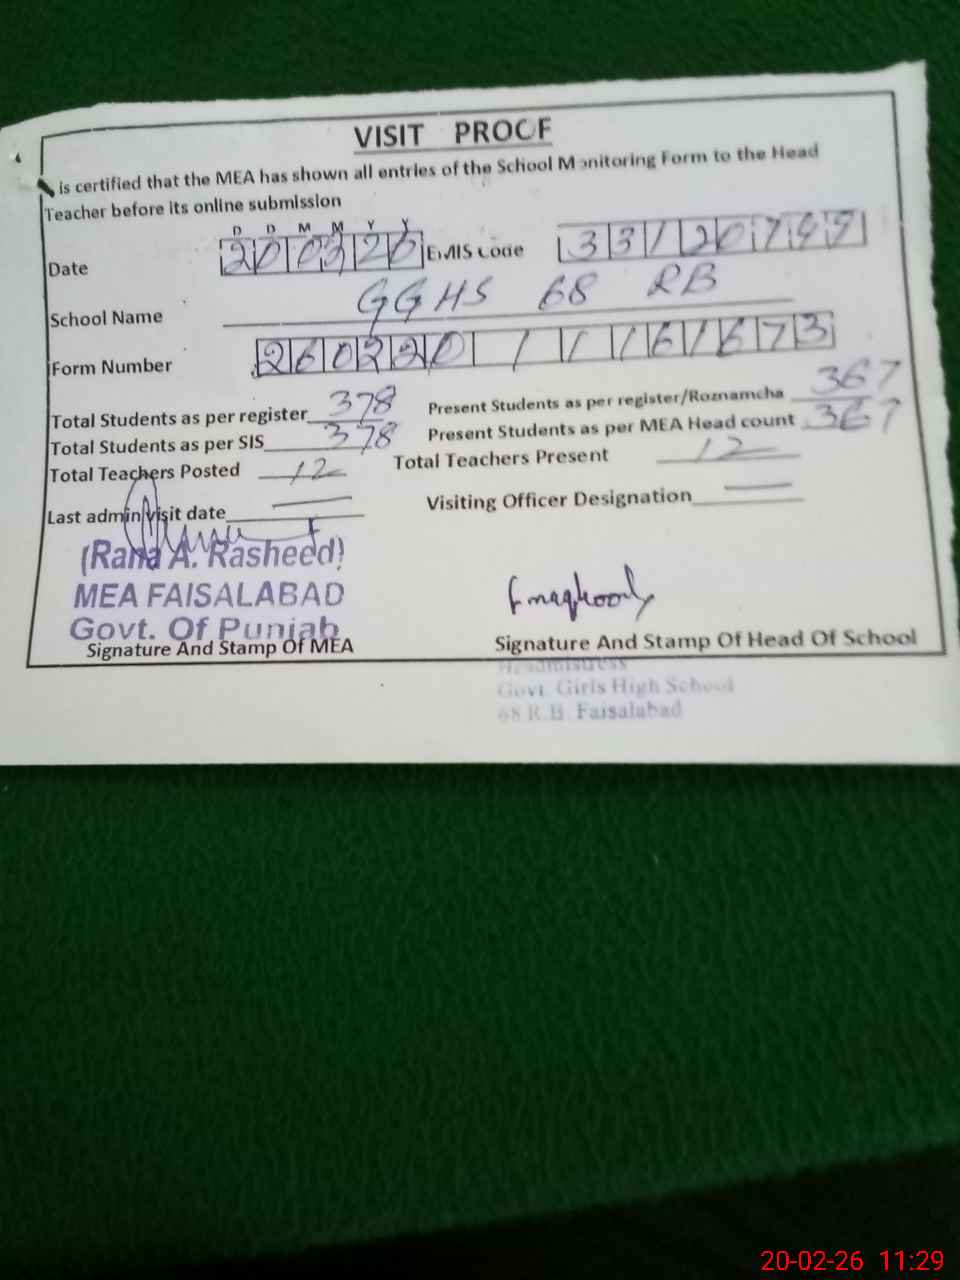 VISIT PROOF
is certified that the MEA has shown all entries of the School Monitoring Form to the Head
Teacher before its online submission
D D M M Y Y
Date 200226 EMIS Code 33120799
School Name GGHS 68 RB
Form Number 260220 / / 161673
Total Students as per register 378 Present Students as per register/Roznamcha 367
Total Students as per SIS 378 Present Students as per MEA Head count 367
Total Teachers Posted 12 Total Teachers Present 12
Last admin visit date — Visiting Officer Designation —
(Rana A. Rasheed)
MEA FAISALABAD
Govt. Of Punjab
Signature And Stamp Of MEA Signature And Stamp Of Head Of School
Headmistress
Govt. Girls High School
68 R.B. Faisalabad
20-02-26 11:29